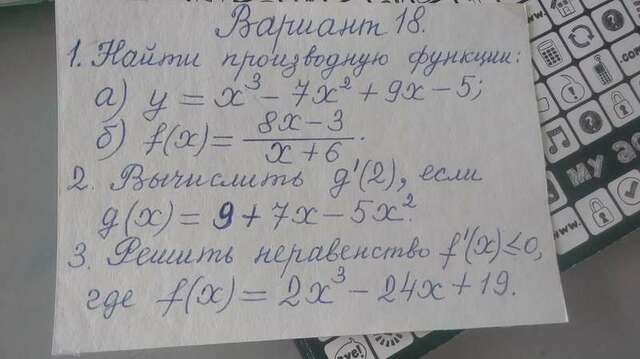 Вариант 18.
1. Найти производную функции:
а) y = x³ - 7x² + 9x - 5;
б) f(x) = (8x - 3)/(x + 6).
2. Вычислить g'(2), если
g(x) = 9 + 7x - 5x².
3. Решить неравенство f'(x) ≤ 0,
где f(x) = 2x³ - 24x + 19.
MY